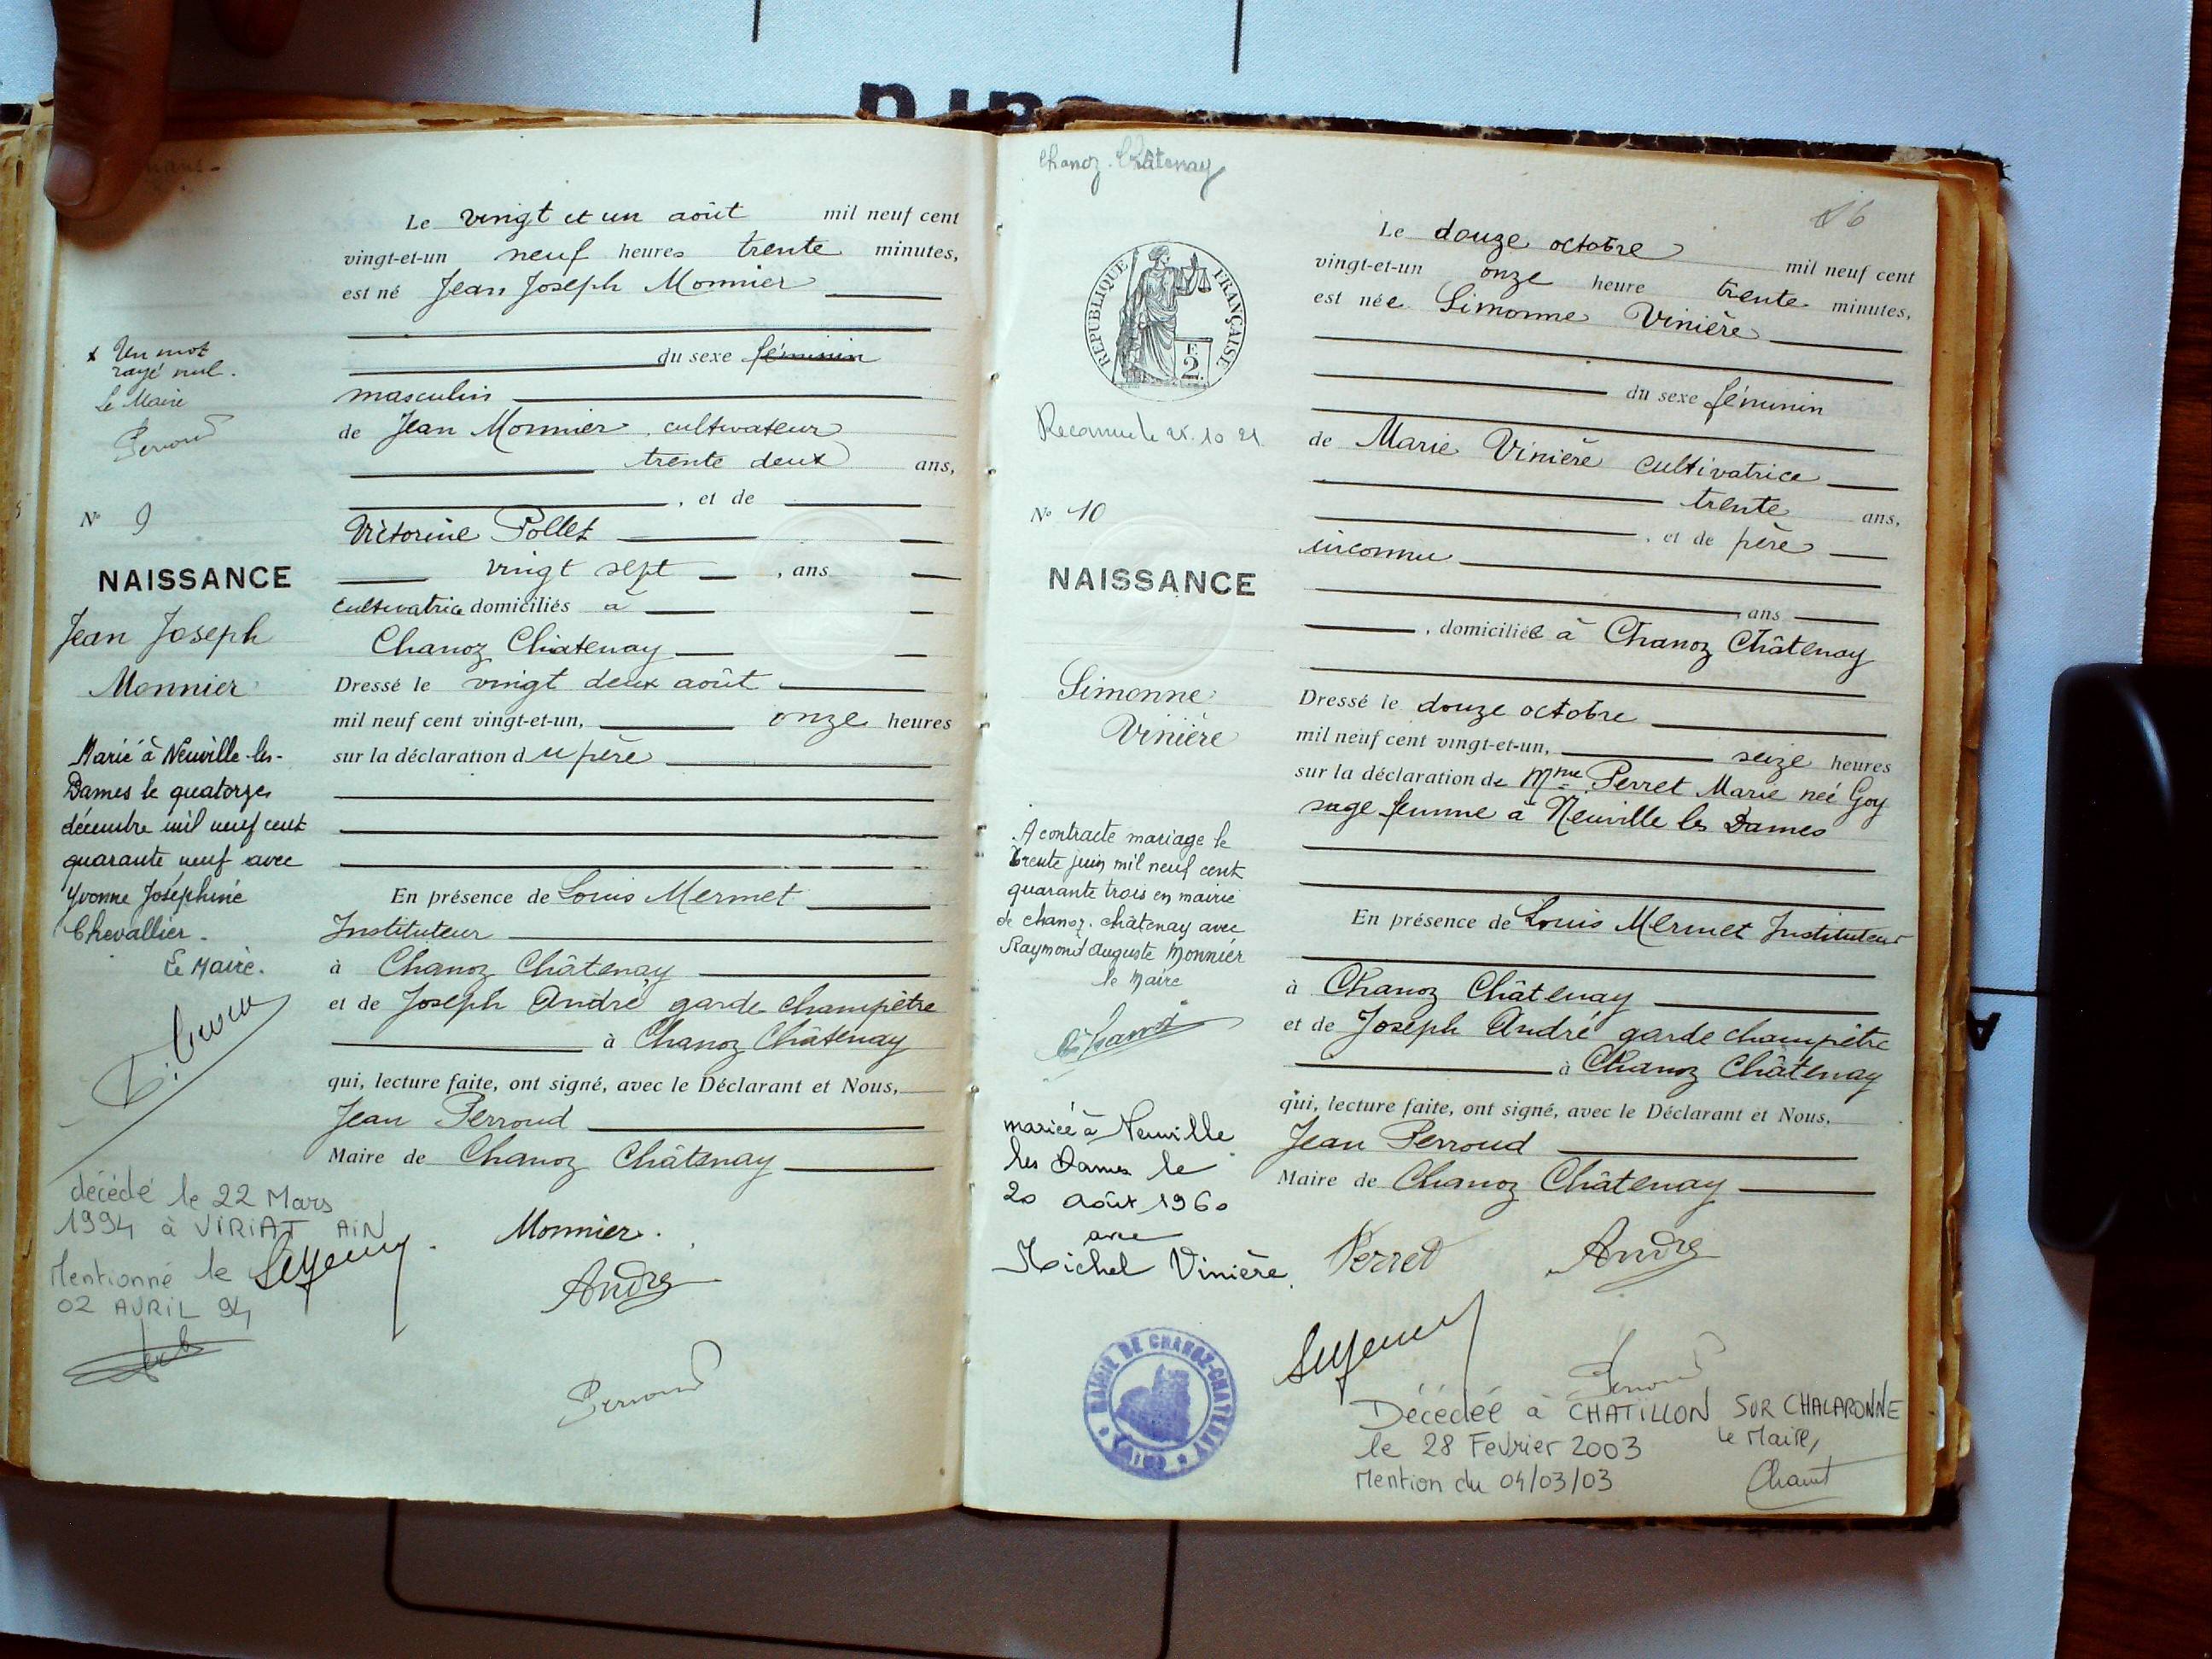 Le vingt et un août mil neuf cent
vingt-et-un neuf heures trente minutes,
est né Jean Joseph Monnier
du sexe féminin
masculin
de Jean Monnier, cultivateur
trente deux ans,
, et de
Victorine Pollet
vingt sept , ans
cultivatrice domiciliés à
Chanoz Châtenay
Dressé le vingt deux août
mil neuf cent vingt-et-un, onze heures
sur la déclaration du père
En présence de Louis Mermet
Instituteur
à Chanoz Châtenay
et de Joseph André garde champêtre
à Chanoz Châtenay
qui, lecture faite, ont signé, avec le Déclarant et Nous,
Jean Perroud
Maire de Chanoz Châtenay
Monnier.
André
Perroud
x Un mot
rayé nul.
Le Maire
Perroud
N° 9
NAISSANCE
Jean Joseph
Monnier
Marié à Neuville-les-
Dames le quatorze
décembre mil neuf cent
quarante neuf avec
Yvonne Joséphine
Chevallier.
Le Maire.
décédé le 22 Mars
1994 à VIRIAT AIN
Mentionné le
02 AVRIL 94
Chanoz-Châtenay
RÉPUBLIQUE FRANÇAISE
2
F.
Reconnue le 10 21
N° 10
NAISSANCE
Simonne
Vinière
A contracté mariage le
trente juin mil neuf cent
quarante trois en mairie
de Chanoz-Châtenay avec
Raymond Auguste Monnier
le Maire
mariée à Neuville
les Dames le
20 août 1960
avec
Michel Vinière
MAIRIE DE CHANOZ-CHATENAY
Le douze octobre mil neuf cent
vingt-et-un onze heure trente minutes,
est née Simonne Vinière
du sexe féminin
de Marie Vinière cultivatrice
trente ans,
, et de père
inconnu
ans
, domiciliée à Chanoz Châtenay
Dressé le douze octobre
mil neuf cent vingt-et-un, seize heures
sur la déclaration de Mme Perret Marie née Goy
sage femme à Neuville les Dames
En présence de Louis Mermet Instituteur
à Chanoz Châtenay
et de Joseph André garde champêtre
à Chanoz Châtenay
qui, lecture faite, ont signé, avec le Déclarant et Nous,
Jean Perroud
Maire de Chanoz Châtenay
Perret André
Perroud
Décédée à CHATILLON SUR CHALARONNE
le 28 Fevrier 2003 Le Maire,
Mention du 04/03/03